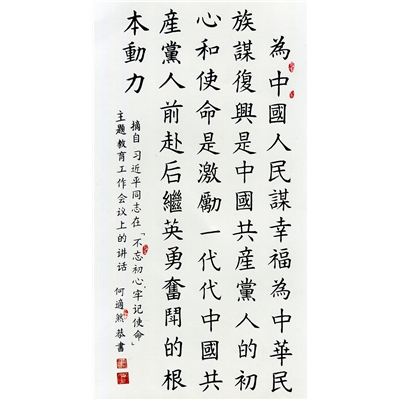 為中國人民謀幸福為中華民
族謀復興是中國共産黨人的初
心和使命是激勵一代代中國共
産黨人前赴后繼英勇奮鬥的根
本動力
摘自习近平同志在「不忘初心、牢记使命」
主题教育工作会议上的讲话 何適然恭書